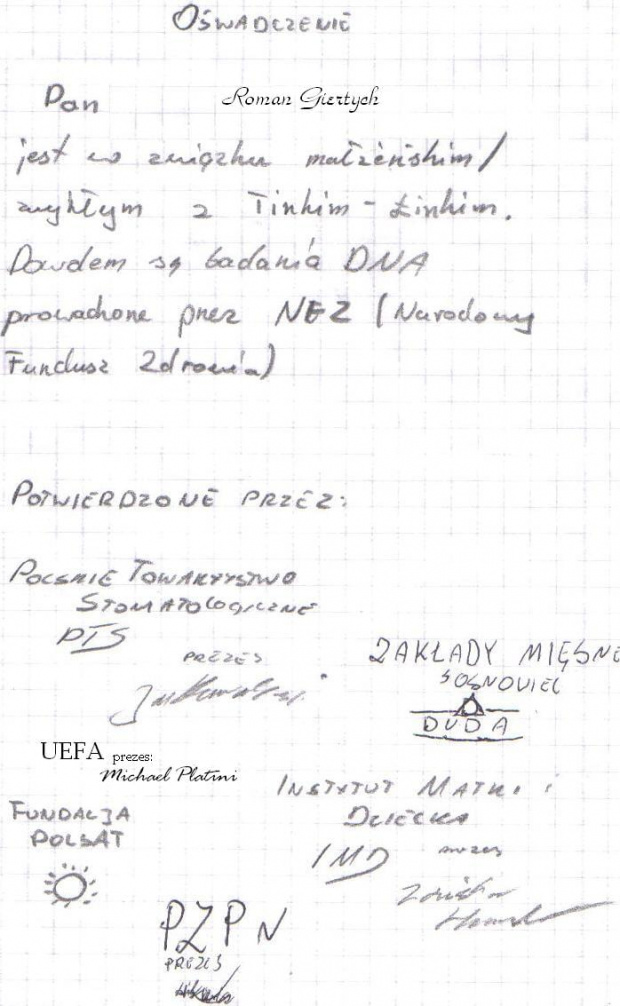 OŚWIADCZENIE
Pan Roman Giertych
jest w związku małżeńskim/
zwykłym z Tinkim-Łinkim.
Dowodem są badania DNA
prowadzone przez NFZ (Narodowy
Fundusz Zdrowia)
POTWIERDZONE PRZEZ:
POLSKIE TOWARZYSTWO
STOMATOLOGICZNE
PTS
PREZES
ZAKŁADY MIĘSNE
SOSNOWIEC
DUDA
UEFA prezes:
Michael Platini
INSTYTUT MATKI I
DZIECKA
IMD prezes
FUNDACJA
POLSAT
PZPN
PREZES